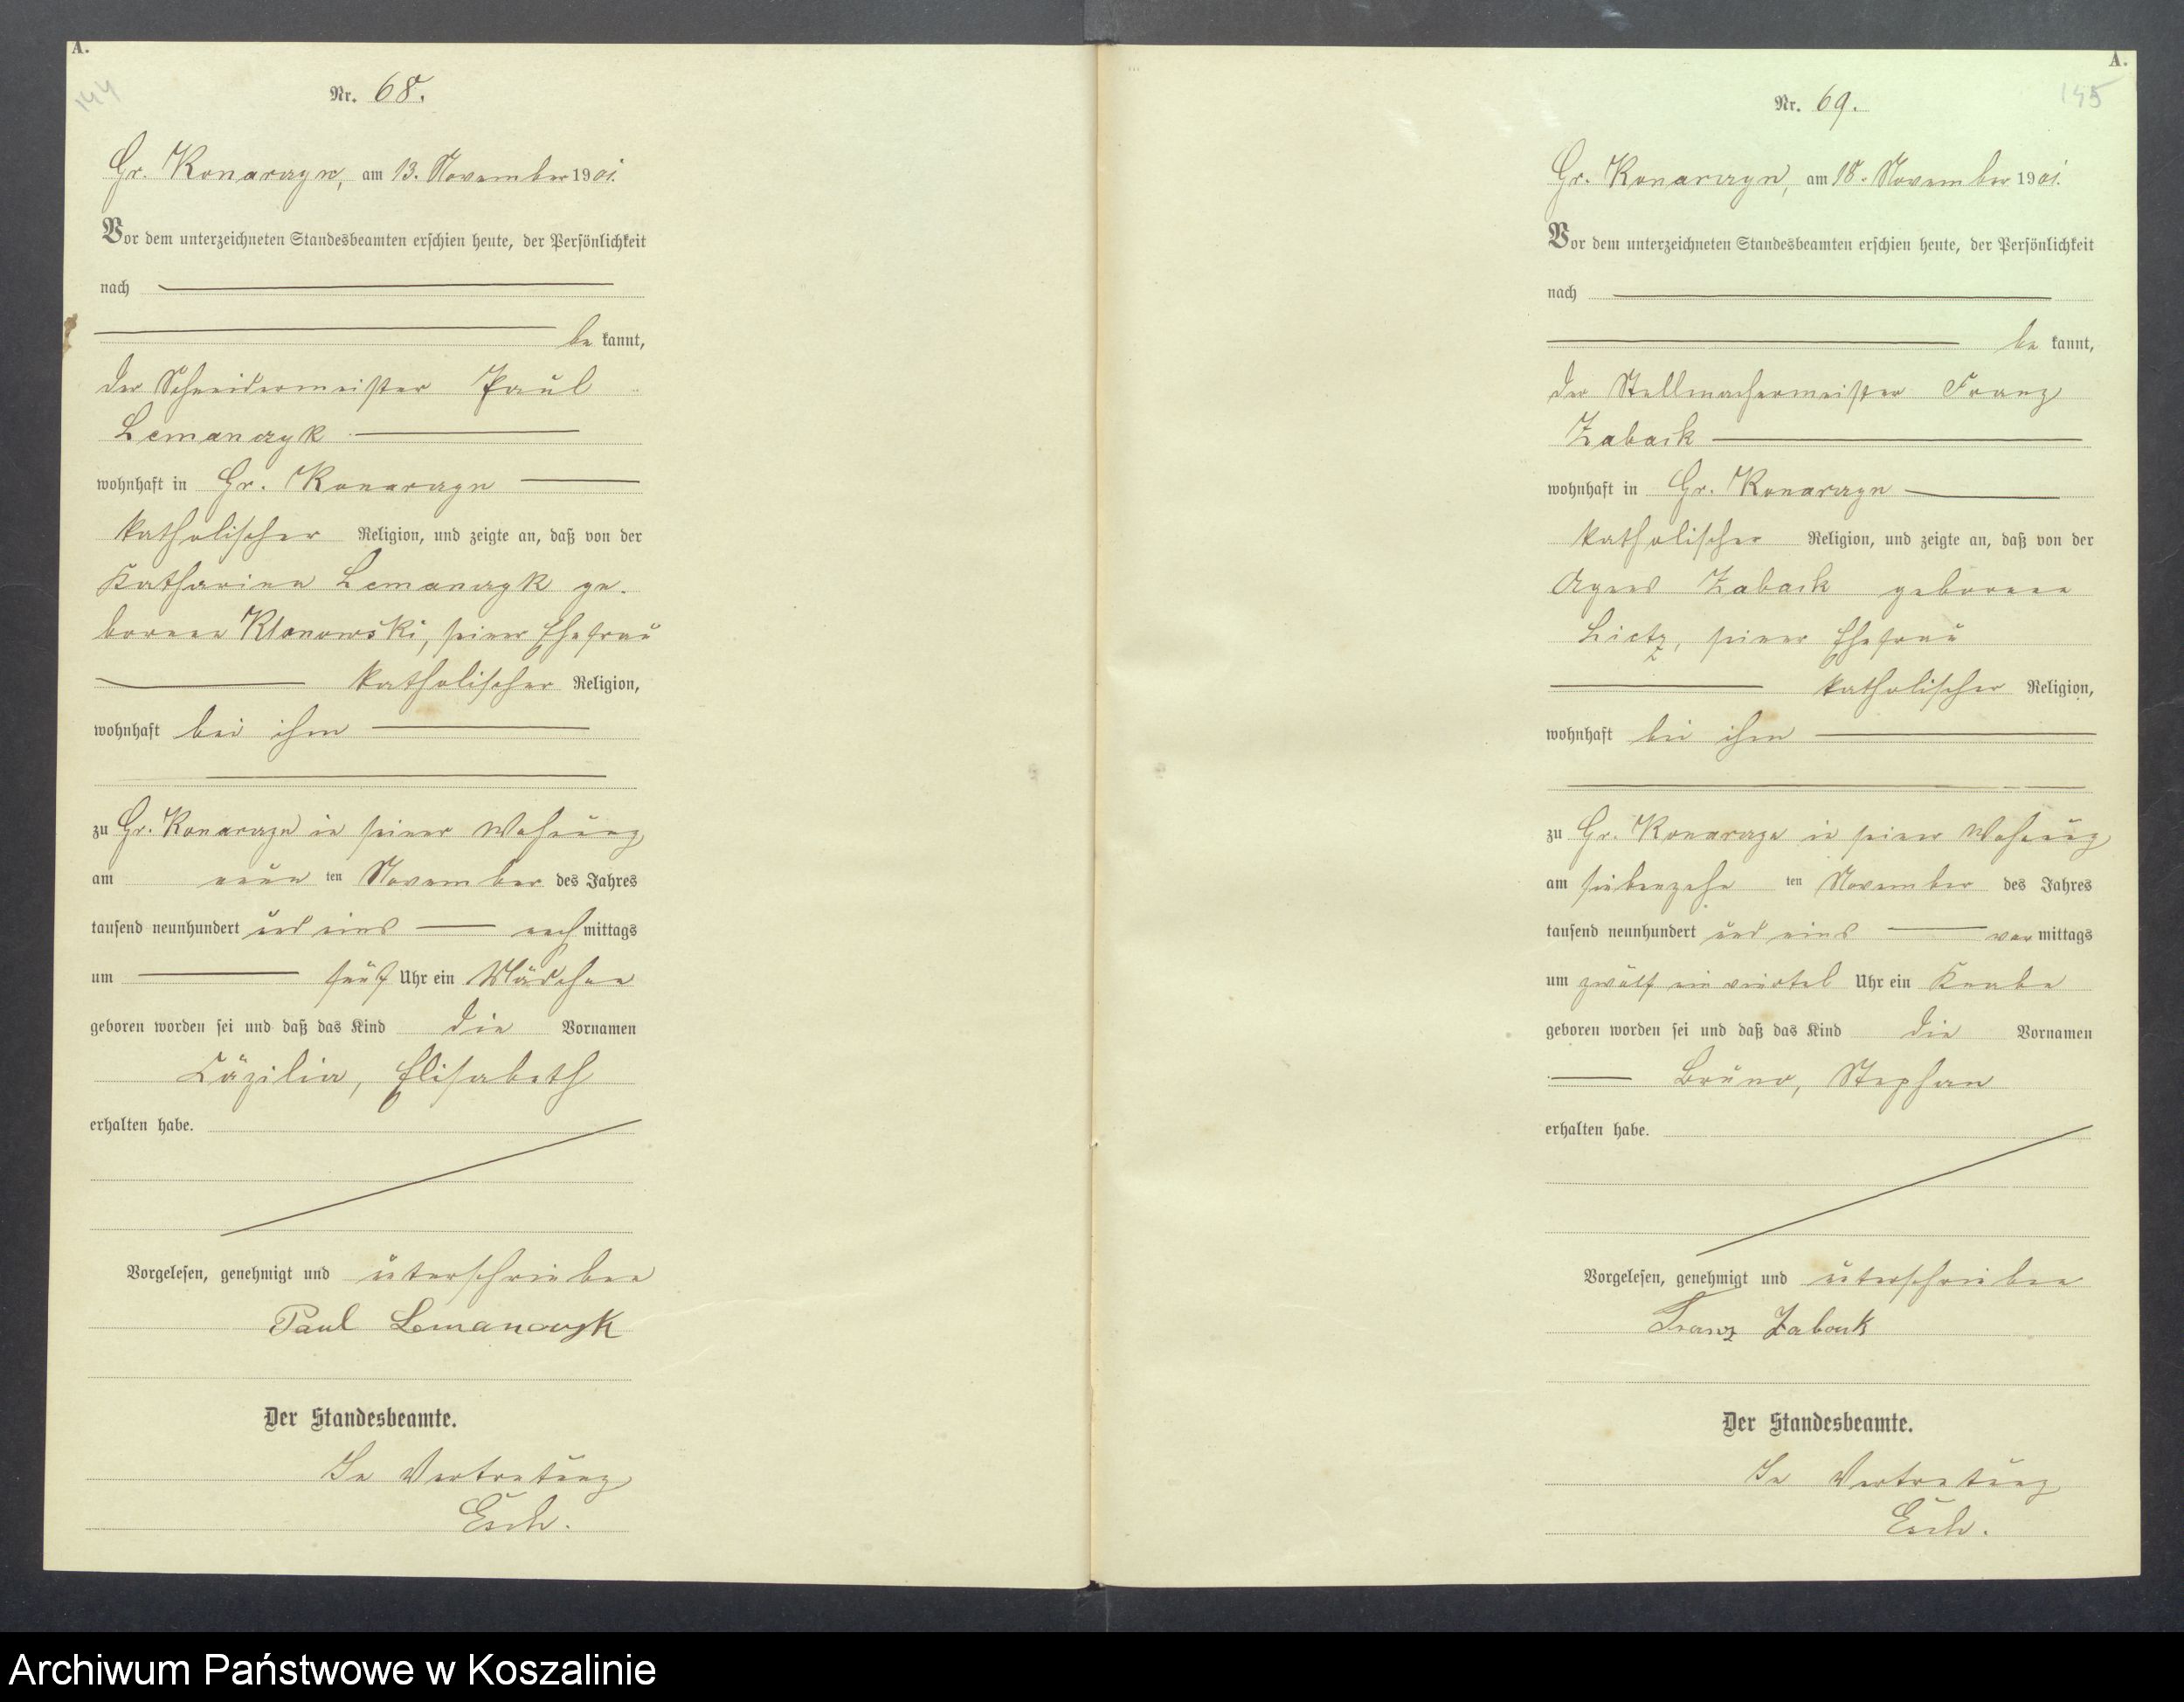 A.
144
Nr. 68.
Gr. Konarczyn, am 13. November 1901.
Vor dem unterzeichneten Standesbeamten erschien heute, der Persönlichkeit
nach
be kannt,
der Schneidermeister Paul
Lemanczyk
wohnhaft in Gr. Konarczyn
katholischer Religion, und zeigte an, daß von der
Katharina Lemanczyk ge.
borenen Klonowski, seiner Ehefrau
katholischer Religion,
wohnhaft bei ihm
zu Gr. Konarczyn in seiner Wohnung
am neun ten November des Jahres
tausend neunhundert und eins nach mittags
um fünf Uhr ein Mädchen
geboren worden sei und daß das Kind die Vornamen
Cäzilia, Elisabeth
erhalten habe.
Vorgelesen, genehmigt und unterschrieben
Paul Lemanczyk
Der Standesbeamte.
In Vertretung
Esch.
A.
145
Nr. 69.
Gr. Konarczyn, am 18. November 1901.
Vor dem unterzeichneten Standesbeamten erschien heute, der Persönlichkeit
nach
be kannt,
der Stellmachermeister Franz
Zabock
wohnhaft in Gr. Konarczyn
katholischer Religion, und zeigte an, daß von der
Agnes geborenen
Lietz, seiner Ehefrau
katholischer Religion,
wohnhaft bei ihm
zu Gr. Konarczyn in seiner Wohnung
am siebenzehn ten November des Jahres
tausend neunhundert und eins vor mittags
um zwölf ein viertel Uhr ein Knabe
geboren worden sei und daß das Kind die Vornamen
Bruno, Stephan
erhalten habe.
Vorgelesen, genehmigt und unterschrieben
Franz
Der Standesbeamte.
In Vertretung
Esch.
Archiwum Państwowe w Koszalinie